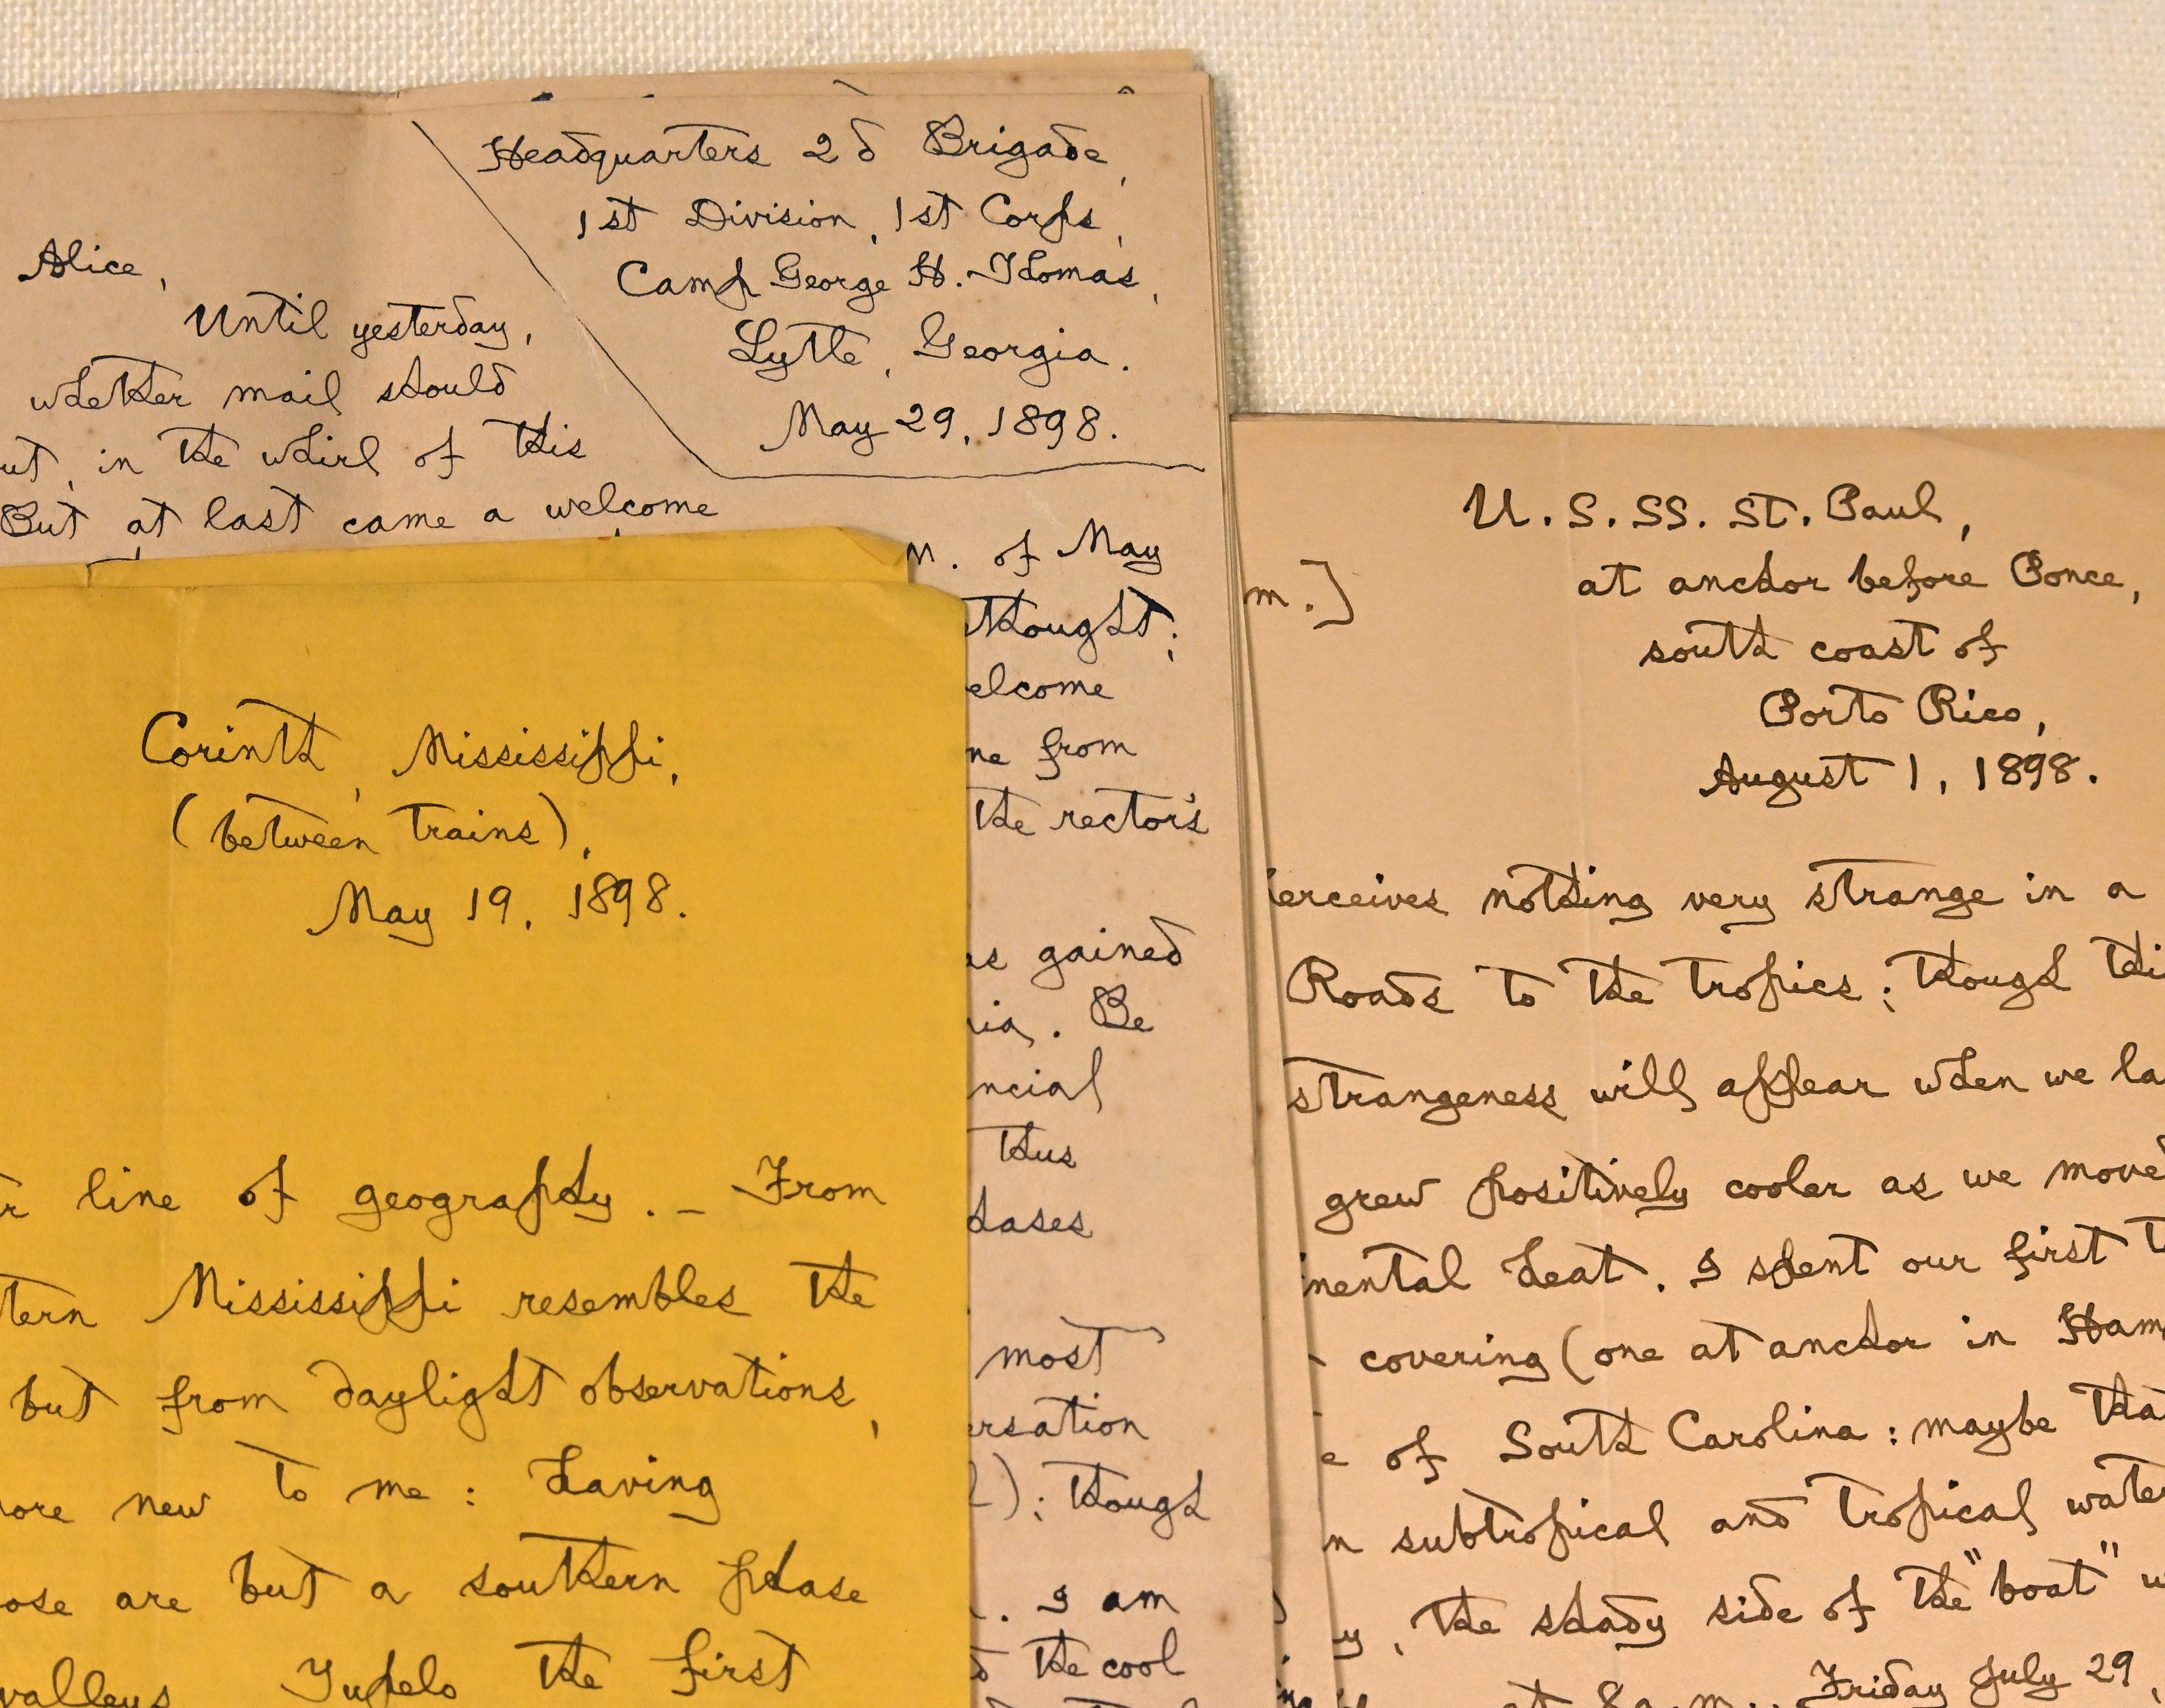 Headquarters 2d Brigade,
1st Division, 1st Corps,
Camp George H. Thomas,
Lytle, Georgia.
May 29, 1898.
Alice,
Until yesterday,
whether mail should
ut, in the whirl of this
But at last came a welcome
m. of May
thought;
elcome
ne from
the rector's
as gained
nia. Be
ncial
thus
hases
most
ersation
); though
. I am
the cool
Corinth, Mississippi,
(between trains),
May 19, 1898.
r line of geography. – From
tern Mississippi resembles the
but from daylight observations,
ore new to me: having
ose are but a southern phase
valleys Tupelo the first
U.S.SS. St. Paul,
at anchor before Ponce,
south coast of
Porto Rico,
August 1, 1898.
m.]
erceives nothing very strange in a
Roads to the tropics; though thi
strangeness will appear when we la
grew positively cooler as we moved
mental heat. I spent our first t
covering (one at anchor in Ham
e of South Carolina: maybe that
n subtropical and tropical water
y, the shady side of the "boat" w
at 8 a.m., Friday July 29,